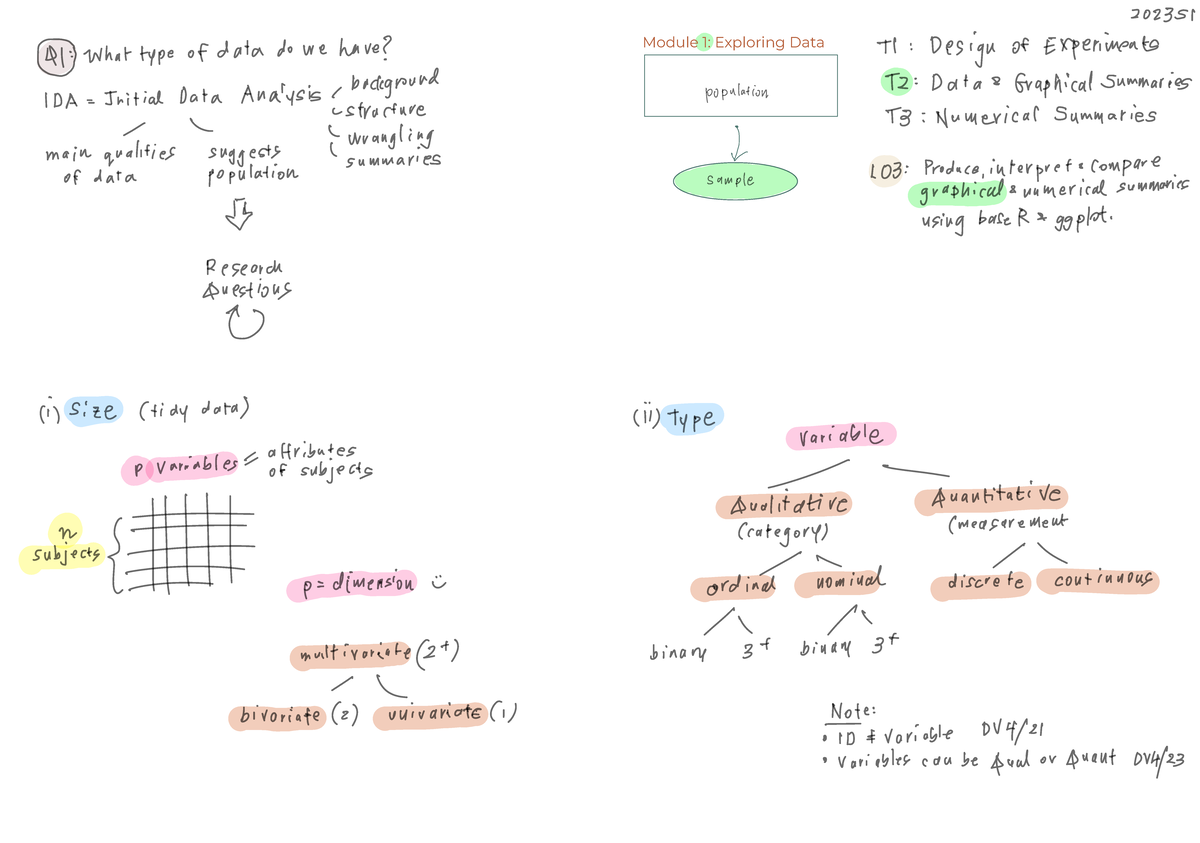 2023S1
Q1: What type of data do we have?
IDA = Initial Data Analysis
background
structure
wrangling
summaries
main qualities
of data
suggests
population
Research
Questions
Module 1: Exploring Data
population
sample
T1: Design of Experiments
T2: Data & Graphical Summaries
T3: Numerical Summaries
LO3: Produce, interpret & compare
graphical & numerical summaries
using base R & ggplot.
(i) Size (tidy data)
p variables = attributes
of subjects
n
subjects
p = dimension
multivariate (2+)
bivariate (2) univariate (1)
(ii) Type
Variable
Qualitative Quantitative
(category) (measurement
ordinal nominal discrete continuous
binary 3+ binary 3+
Note:
• ID ≠ Variable DV4/21
• Variables can be Qual or Quant DV4/23